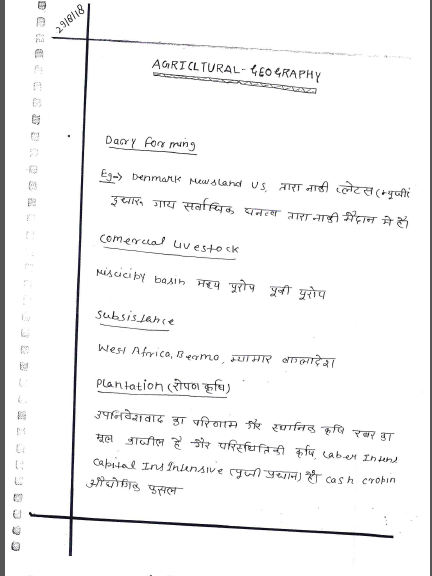 29/8/18
AGRICLTURAL-GEOGRAPHY
Dairy Forming
Eg→ Denmark Newsland US, तारा नाकी प्लेटस (न्यूजी
दुधारू गाय सर्वाधिक घनत्व तारा नाकी मैदान में है।
Comercual Livestock
Miscicipy basin मध्य यूरोप पूर्वी यूरोप
Subsistance
West Africa, Berma, म्यामार बाग्लादेश
Plantation (रोपण कृषि)
उपनिवेशवाद का परिणाम गैर स्थानिक कृषि रबर का
मूल ब्राजील है गैर परिस्थितिकी कृषि, Laber Intens
Capital Ins Intensive (पूजी प्रधान) है। Cash cropin
औद्योगिक फसल